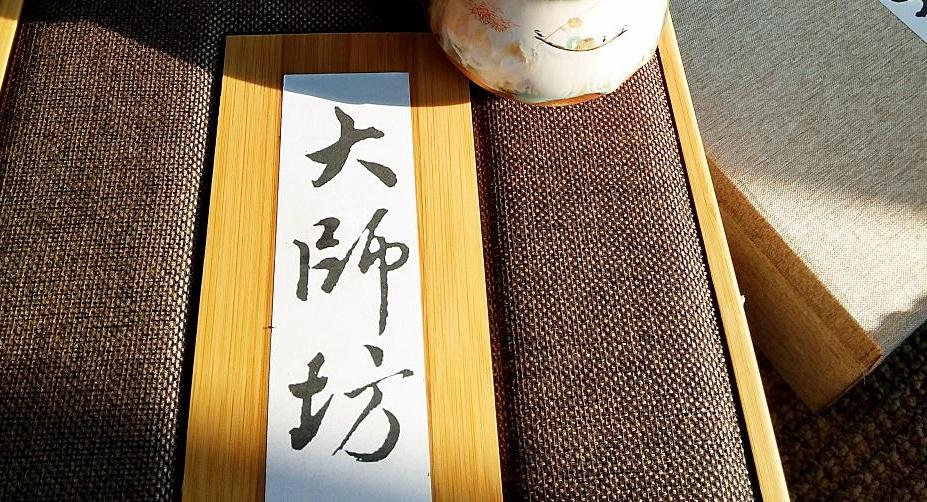 大師坊